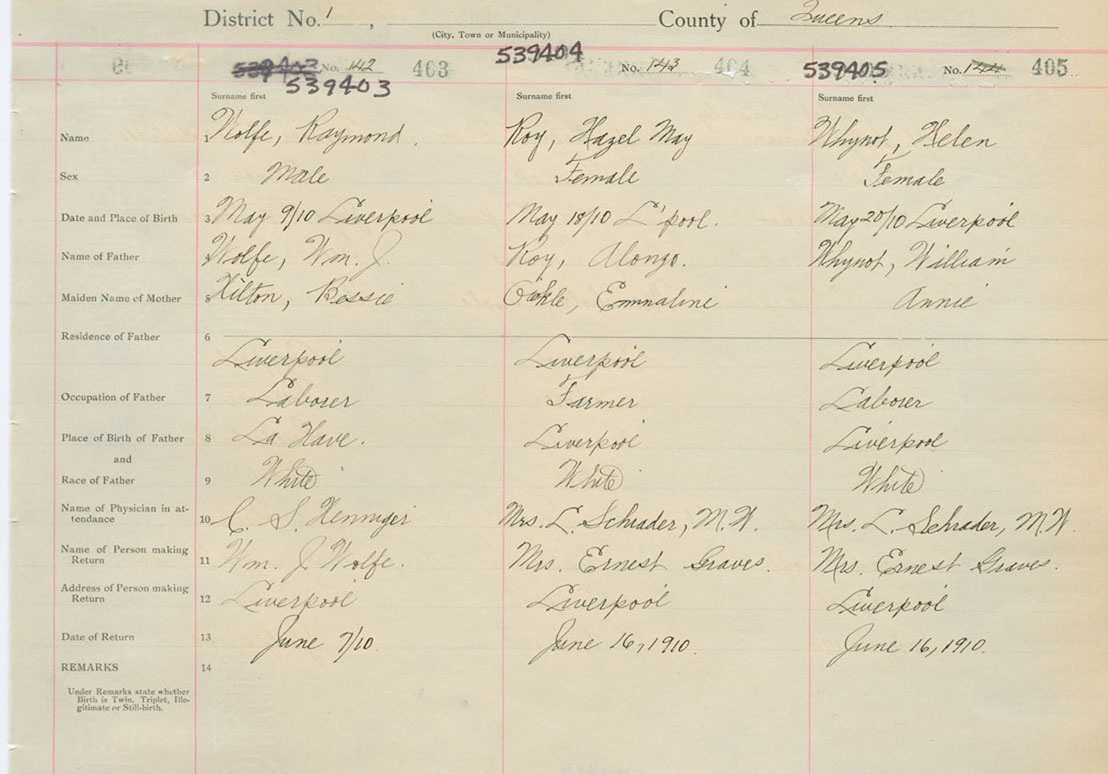 District No. 1 , County of Queens
(City, Town or Municipality)
539403 No. 142 403 539404 No. 143 404 539405 No. 144 405
539403
Surname first Surname first Surname first
Name 1 Wolfe, Raymond. Roy, Hazel May Whynot, Helen
Sex 2 Male Female Female
Date and Place of Birth 3 May 9/10 Liverpool May 18/10 L'pool. May 20/10 Liverpool
Name of Father Wolfe, Wm. J. Roy, Alonzo. Whynot, William
Maiden Name of Mother 5 Hilton, Bessie Oickle, Emmaline Annie
Residence of Father 6
Liverpool Liverpool Liverpool
Occupation of Father 7 Laborer Farmer Laborer
Place of Birth of Father 8 La Have. Liverpool Liverpool
and
Race of Father 9 White White White
Name of Physician in at-
tendance 10 C. S. Henniger Mrs. L. Schrader, M.W. Mrs. L. Schrader, M.W.
Name of Person making
Return 11 Wm. J. Wolfe. Mrs. Ernest Graves. Mrs. Ernest Graves.
Address of Person making
Return 12 Liverpool Liverpool Liverpool
Date of Return 13 June 7/10. June 16, 1910. June 16, 1910.
REMARKS 14
Under Remarks state whether
Birth is Twin, Triplet, Ille-
gitimate or Still-birth.